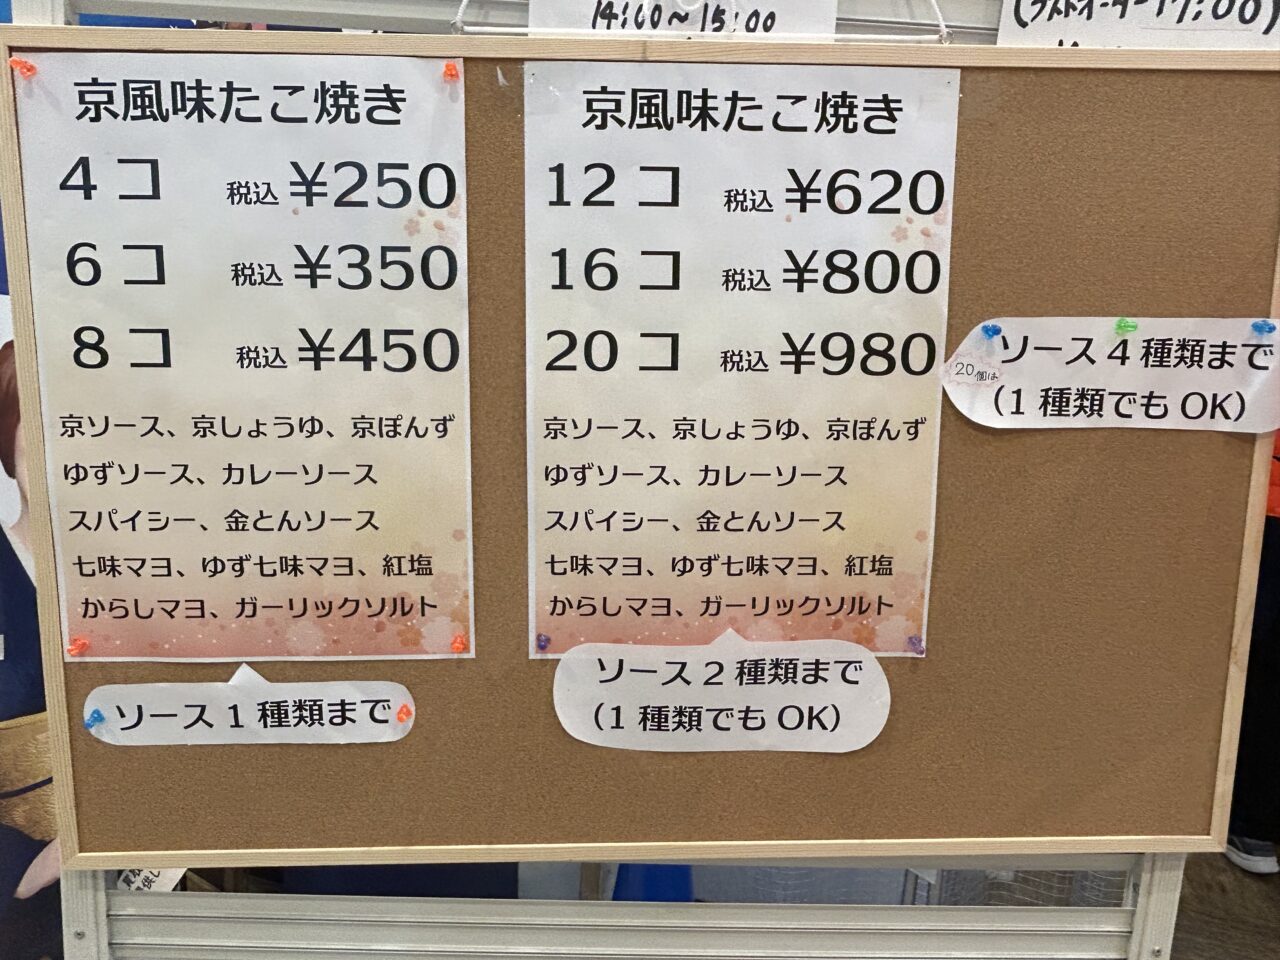 14:00〜15:00
(ラストオーダー17:00)
京風味たこ焼き
4コ 税込 ¥250
6コ 税込 ¥350
8コ 税込 ¥450
京ソース、京しょうゆ、京ぽんず
ゆずソース、カレーソース
スパイシー、金とんソース
七味マヨ、ゆず七味マヨ、紅塩
からしマヨ、ガーリックソルト
ソース1種類まで
京風味たこ焼き
12コ 税込 ¥620
16コ 税込 ¥800
20コ 税込 ¥980
京ソース、京しょうゆ、京ぽんず
ゆずソース、カレーソース
スパイシー、金とんソース
七味マヨ、ゆず七味マヨ、紅塩
からしマヨ、ガーリックソルト
ソース2種類まで
（1種類でもOK）
20個は
ソース4種類まで
（1種類でもOK）